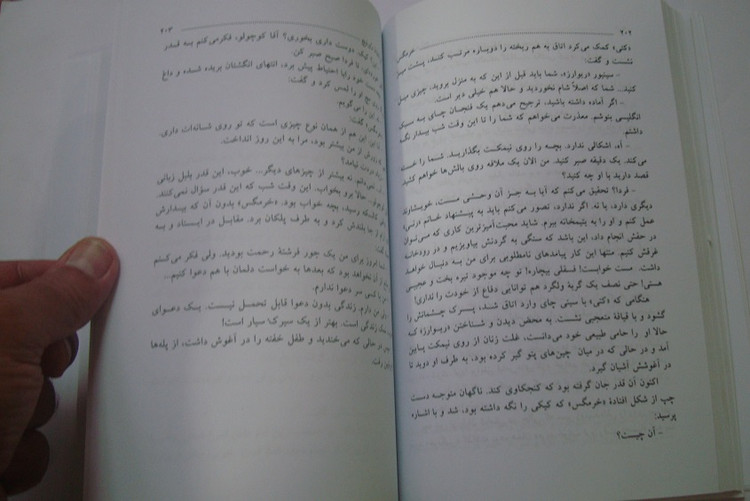 ۲۰۲
خرمگس
«کتی» کمک می‌کرد اتاق به هم ریخته را دوباره مرتب کنند، پشت میز
نشست و گفت:
- سینیور ریوارز، شما باید قبل از این که به منزل بروید، چیزی میل
کنید... شما که اصلاً شام نخوردید و حالا هم خیلی دیر است.
- اگر آماده داشته باشید، ترجیح می‌دهم یک فنجان چای به سبک
انگلیسی بنوشم. معذرت می‌خواهم که شما را تا این وقت شب بیدار نگه
داشتم.
- آه، اشکالی ندارد. بچه را روی نیمکت بگذارید. شما را خسته
می‌کند. یک دقیقه صبر کنید. من الان یک ملافه روی بالش‌ها خواهم کشید.
قصد دارید با او چه کنید؟
- فردا؟ تحقیق می‌کنم که آیا به جز آن وحشی مست، خویشاوند
دیگری دارد، یا نه. اگر ندارد، تصور می‌کنم باید به پیشنهاد خانم درنی
عمل کنم و او را به یتیمخانه ببرم. شاید محبت‌آمیزترین کاری که می‌توان
در حقش انجام داد، این باشد که سنگی به گردنش بیاویزیم و در رودخانه
غرقش کنیم. منتها این کار پیامدهای نامطلوبی برای من به دنبال خواهد
داشت. مست خوابست! طفلی بیچاره! تو چه موجود تیره بخت و عجیبی
هستی! حتی نصف یک گربهٔ ولگرد هم توانایی دفاع از خودت را نداری!
هنگامی که «کتی» با سینی چای وارد اتاق شد، پسرک چشمانش را
گشود و با قیافهٔ متعجبی نشست. به محض دیدن و شناختن «ریوارز» که
حالا او را حامی طبیعی خود می‌دانست، غلت زنان از روی نیمکت پایین
آمد و در حالی که در میان چین‌های پتو گیر کرده بود، به طرف او دوید تا
در آغوشش آشیان گیرد.
اکنون آن قدر جان گرفته بود که کنجکاوی کند. ناگهان متوجه دست
چپ از شکل افتادهٔ «خرمگس» که کیکی را نگه داشته بود، شد و با اشاره
پرسید:
- آن چیست؟
۲۰۳
کیک. دوست داری بخوری؟ آقا کوچولو، فکر می‌کنم به قدر
تا فردا صبح صبر کن
دست خود را با احتیاط پیش برد، انتهای انگشتان بریده شده و داغ
او را لمس کرد و گفت:
را می‌گویم.
گفت:
این هم از همان نوع چیزی است که تو روی شانه‌ات داری.
از من بیشتر بود، مرا به این روز انداخت.
دردت نیامد؟
نمی‌دانم. نه بیشتر از چیزهای دیگر... خوب، این قدر بلبل زبانی
حالا برو بخواب. این وقت شب که این قدر سؤال نمی‌کنند.
رسید، بچه خواب بود. «خرمگس» بدون آن که بیدارش
بلندش کرد و به طرف پلکان برد. مقابل در ایستاد و به
امروز برای من یک جور فرشتهٔ رحمت بودید. ولی فکر می‌کنم
آن نخواهد بود که بعدها به خواست دلمان با هم دعوا کنیم...
با کسی سر دعوا ندارم.
من دارم. زندگی بدون دعوا قابل تحمل نیست. یک دعوای
زندگی است. بهتر از یک سیرک سیار است!
در حالی که می‌خندید و طفل خفته را در آغوش داشت، از پله‌ها
رفت